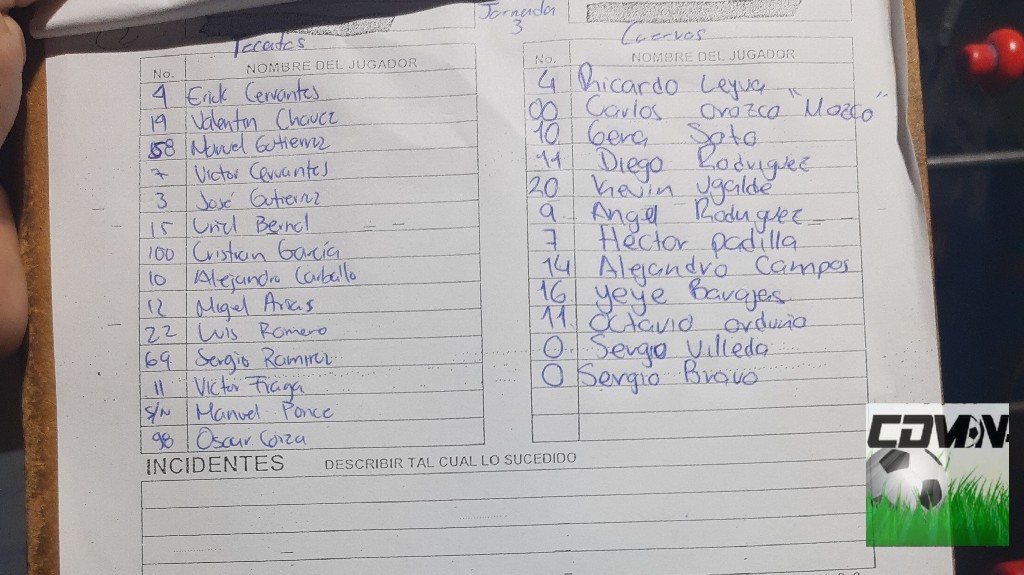 Jornada
3
Tecates
No. NOMBRE DEL JUGADOR
4 Erick Cervantes
19 Valentin Chavez
58 Manuel Gutierrez
7 Victor Cervantes
3 José Gutierrez
15 Uriel Bernal
100 Cristian García
10 Alejandro Carballo
12 Migel Arias
22 Luis Romero
69 Sergio Ramirez
11 Victor Fraga
S/N Manuel Ponce
98 Oscar
Cuervos
No. NOMBRE DEL JUGADOR
4 Ricardo Leyva
00 Carlos Orozco "Mozco"
10 Gera Soto
11 Diego Rodriguez
20 Kevin Ugalde
9 Angel Rodriguez
7 Héctor padilla
14 Alejandro Campos
16 yeye Barajas
11 Octavio orduño
0 Sergio Villeda
0 Sergio Bravo
INCIDENTES DESCRIBIR TAL CUAL LO SUCEDIDO
CDMN